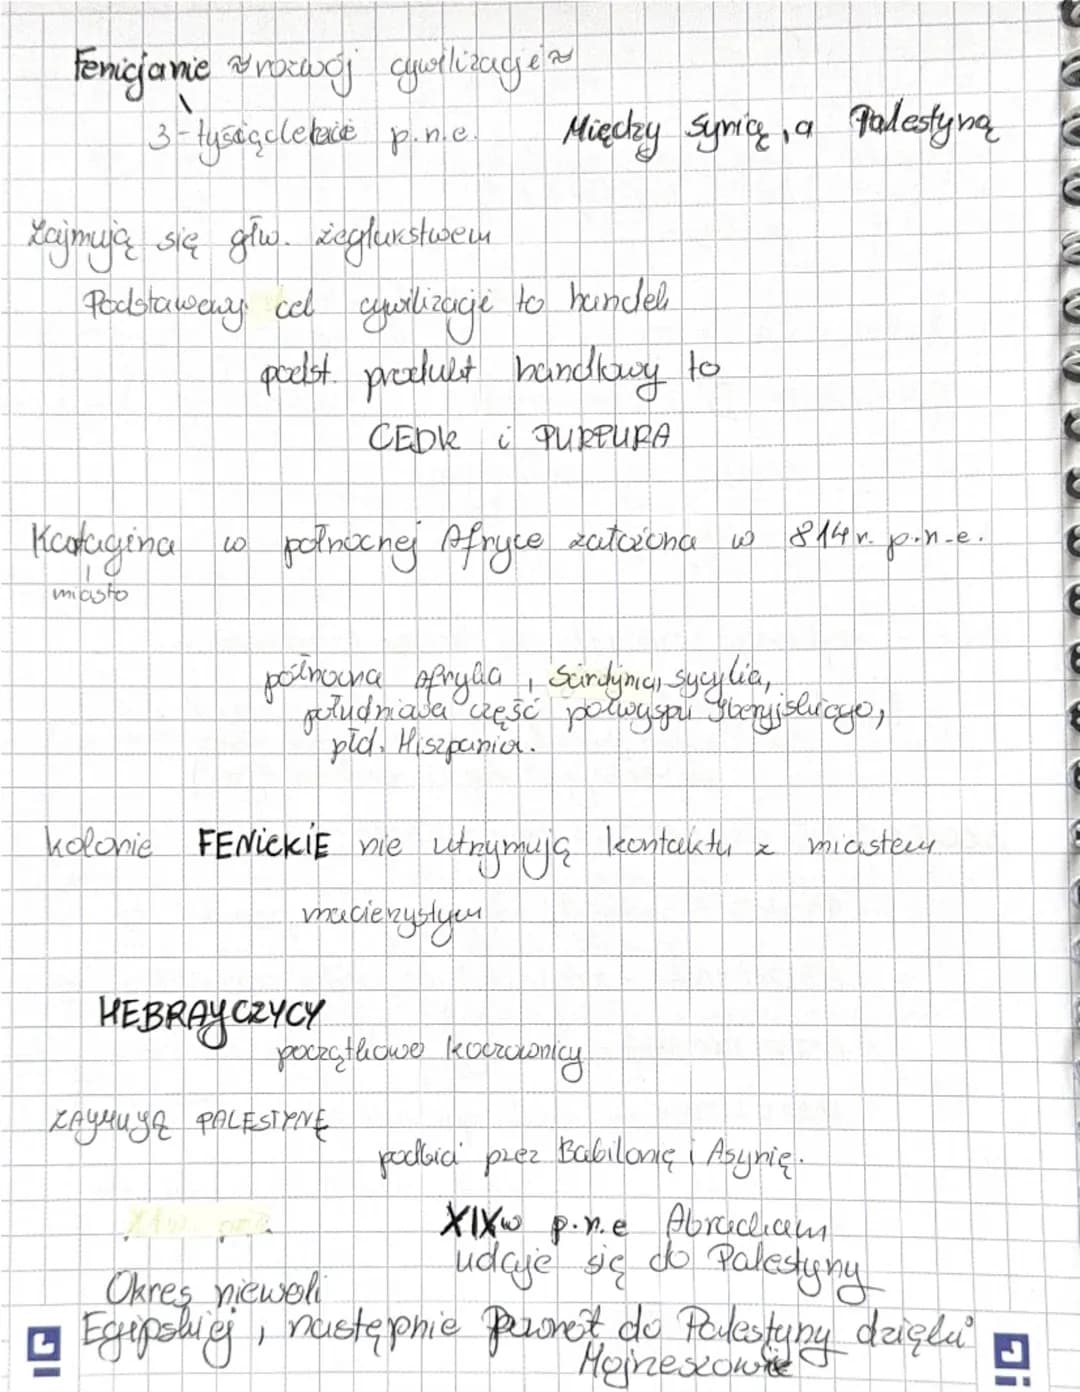 Fenicjanie ≈ rozwój cywilizacje ≈
3-tysiąclecie p.n.e. Między Syrią, a Palestyną
Zajmują się głw. żeglurstwem
Podstawowy cel cywilizacje to handel
podst. produkt handlowy to
CEDR i PURPURA
Kartagina w północnej Afryce założona w 814 r. p.n.e.
miasto
północna Afryka, Sardynia, Sycylia,
południowa część półwyspu Iberyjskiego,
płd. Hiszpania.
kolonie FENICKIE nie utrzymują kontaktu z miastem
macierzystym
HEBRAYCZYCY
początkowo koczownicy
ZAYMUYĄ PALESTYNĘ
podbici przez Babilonię i Asyrię.
XIXw p.n.e Abracham
udaje się do Palestyny
Okres niewoli
Egipskiej, następnie powrót do Palestyny dzięki
Mojżeszowie